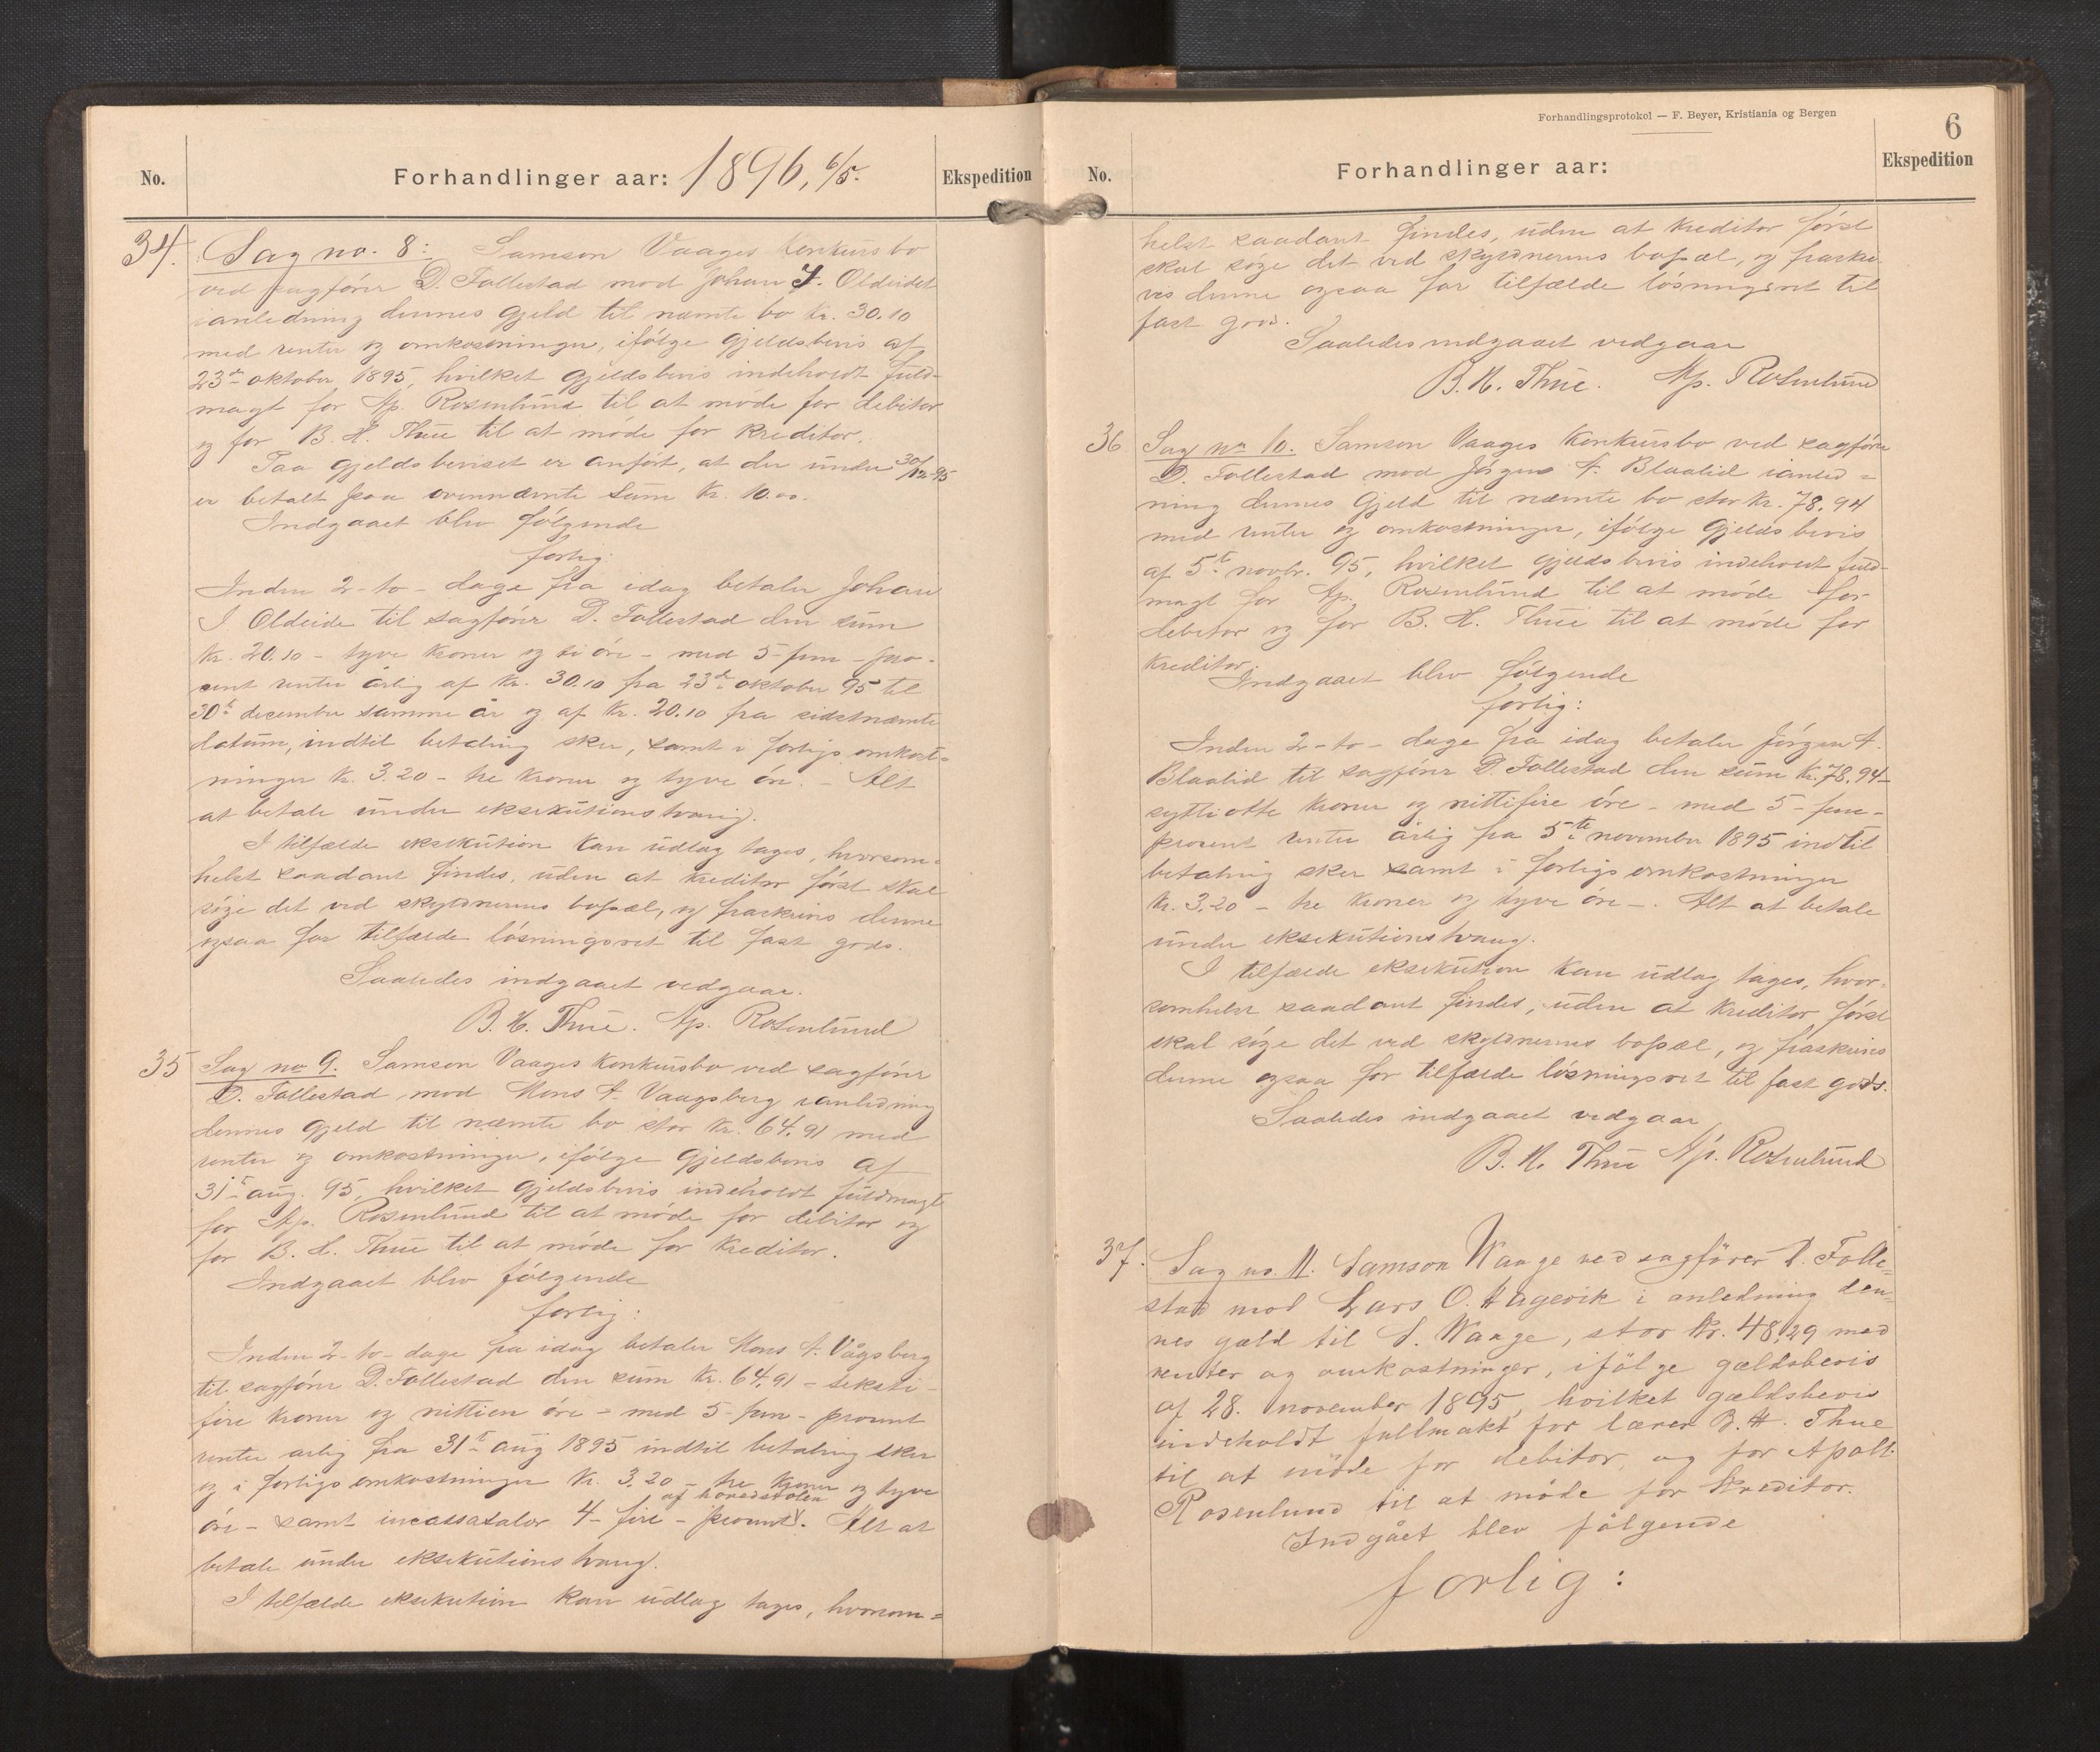 No.
Forhandlinger aar: 1896, 6/5.
Ekspedition
34. Sag no. 8: Samson Vaages konkursbo
ved sagfører D. Follestad mod Johan J. Oldeidet
ianledning dennes gjeld til nævnte bo kr. 30.10
med renter og omkostninger, ifølge gjeldsbevis af
23de oktober 1895, hvilket gjeldsbevis indeholdt fuld-
magt for Ap. Rosenlund til at møde for debitor
og for B. H. Thue til at møde for kreditor.
Paa gjeldsbeviset er anført, at der under 30/12-95
er betalt paa ovennævnte sum kr. 10.00.
Indgaaet blev følgende
forlig:
Inden 2 - to - dage fra idag betaler Johan
J. Oldeide til sagfører D. Follestad den sum
kr. 20.10 - tyve kroner og ti øre - med 5 - fem - pro-
cent renter årlig af kr. 30.10 fra 23de oktober 95 til
30te december samme år og af kr. 20.10 fra sidstnævnte
datum, indtil betaling sker, samt i forligsomkost-
ninger kr. 3.20 - tre kroner og tyve øre. - Alt
at betale under eksekutionstvang.
I tilfælde eksekution kan udlæg tages, hvorsom-
helst saadant findes, uden at kreditor først skal
søge det ved skyldnerens bopæl, og fraskrives denne
ogsaa for tilfælde løsningsret til fast gods.
Saaledes indgaaet vedgaar.
B. H. Thue. Ap. Rosenlund
35 Sag no 9. Samson Vaages konkursbo ved sagfører
D. Follestad mod Mons A. Vaagsberg ianledning
dennes gjeld til nævnte bo stor kr. 64,91 med
renter og omkostninger, ifølge gjeldsbevis af
31te aug. 95, hvilket gjeldsbevis indeholdt fuldmagt
for Ap. Rosenlund til at møde for debitor og
for B. H. Thue til at møde for kreditor.
Indgaaet blev følgende
forlig:
Inden 2 - to - dage fra idag betaler Mons A. Vågsberg
til sagfører D. Follestad den sum kr. 64,91 - seksti-
fire kroner og nittien øre - med 5 - fem - procent
renter årlig fra 31te aug 1895 indtil betaling sker
og i forligsomkostninger kr. 3,20 - tre kroner og tyve
af hovedstolen
øre - samt incassasalær 4 - fire - procent. Alt at
betale under eksekutionstvang.
I tilfælde eksekution kan udlæg tages, hvorsom-
Forhandlingsprotokol — F. Beyer, Kristiania og Bergen
6
No.
Forhandlinger aar:
Ekspedition
helst saadant findes, uden at kreditor først
skal søge det ved skyldnerens bopæl, og fraskri-
ves denne ogsaa for tilfælde løsningsret til
fast gods.
Saaledes indgaaet vedgaar
B. H. Thue. Ap. Rosenlund
36 Sag no 10. Samson Vaages konkursbo ved sagfører
D. Follestad mod Jørgen A. Blaalid ianled-
ning dennes gjeld til nævnte bo stor kr. 78,94
med renter og omkostninger, ifølge gjeldsbevis
af 5te novbr. 95, hvilket gjeldsbevis indeholdt fuld-
magt for Ap. Rosenlund til at møde for
debitor og for B. H. Thue til at møde for
kreditor.
Indgaaet blev følgende
forlig:
Inden 2 - to - dage fra idag betaler Jørgen A.
Blaalid til sagfører D. Follestad den sum kr. 78,94 -
sytti otte kroner og nittifire øre - med 5 - fem -
procent renter årlig fra 5te november 1895 indtil
betaling sker samt i forligsomkostninger
kr. 3,20 - tre kroner og tyve øre -. Alt at betale
under eksekutionstvang.
I tilfælde eksekution kan udlæg tages, hvor-
somhelst saadant findes, uden at kreditor først
skal søge det ved skyldnerens bopæl, og fraskrives
denne ogsaa for tilfælde løsningsret til fast gods.
Saaledes indgaaet vedgaar
B. H. Thue Ap. Rosenlund
37. Sag no. 11. Samson Waage ved sagfører D. Folle-
stad mod Lars O. Hagevik i anledning den-
nes gæld til S. Waage, stor kr. 48,29 med
renter og omkostninger, ifølge gældsbevis
af 28. november 1895, hvilket gældsbevis
indeholdt fullmakt for lærer B. H. Thue
til at møde for debitor, og for Apoll.
Rosenlund til at møde for kreditor.
Indgået blev følgende
forlig: